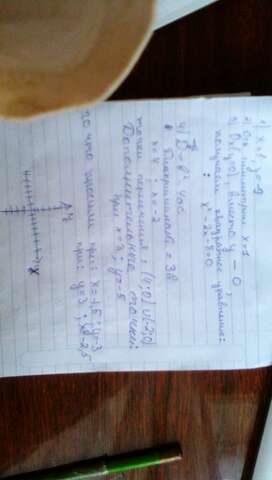 1) x=1, y=-9
2) Ось симметрии x=1
3) Ox(y=0), вместо y — 0
получаем квадратное уравнение:
x²-2x-8=0
4) D = b²-4ac
Дискриминант = 36
x=4 ; -2
точки пересечения: (4;0) и (-2;0)
Дополнительная точка:
при x=3; y=-5
y
x
то что просили при: x=-1,5; y=-3
при: y=3 ; x=-2,5